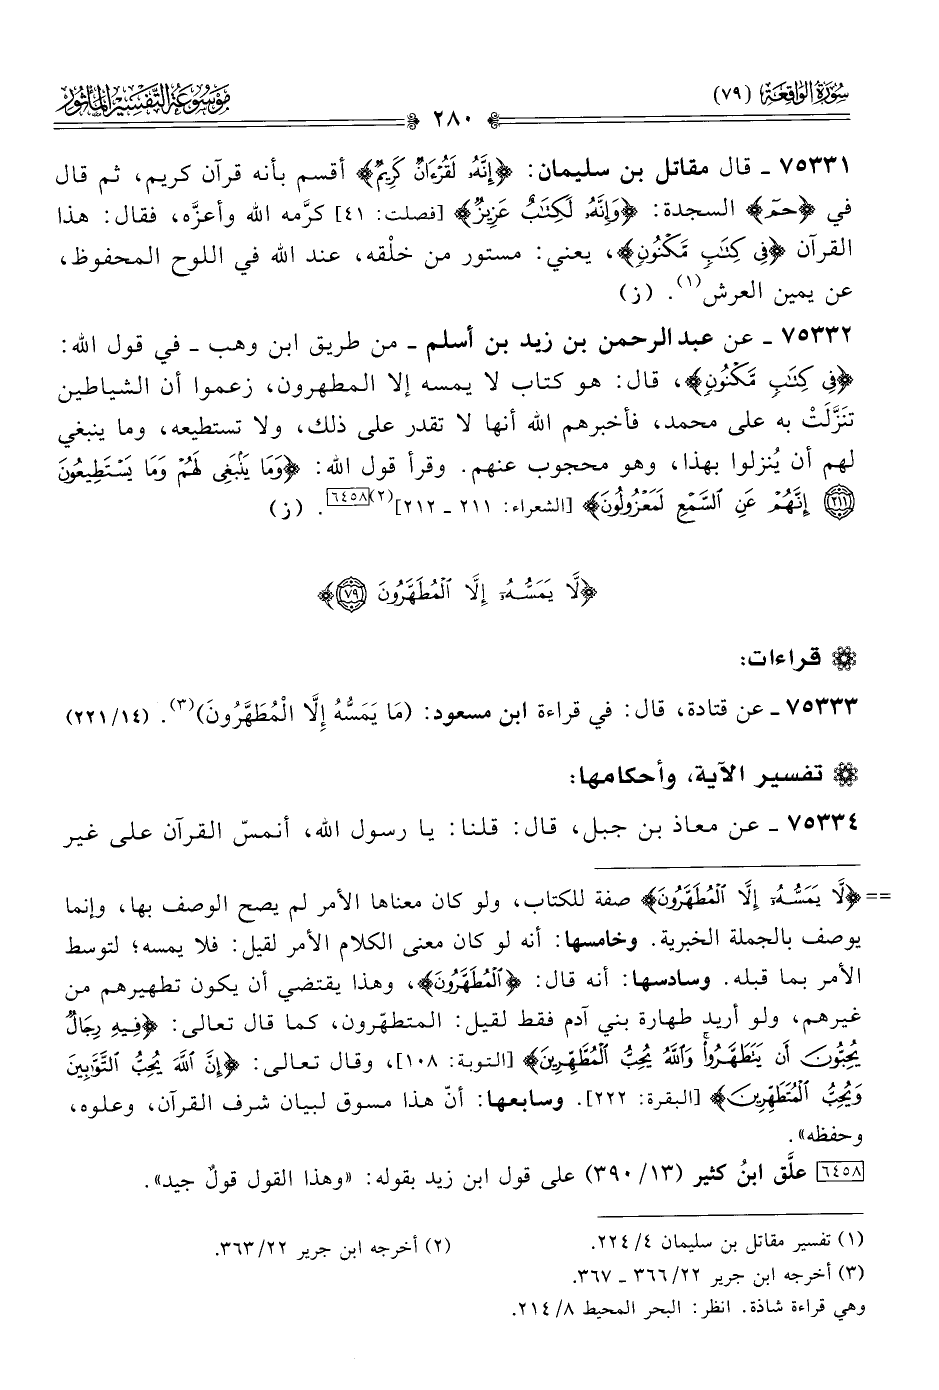 سورة الواقعة (٧٩)
٢٨٠
موسوعة التفسير المأثور
٧٥٣٣١ ـ قال مقاتل بن سليمان: ﴿إِنَّهُۥ لَقُرْءَانٌ كَرِيمٌ﴾ أقسم بأنه قرآن كريم، ثم قال
في ﴿حمٓ﴾ السجدة: ﴿وَإِنَّهُۥ لَكِتَٰبٌ عَزِيزٌ﴾ [فصلت: ٤١] كرَّمه الله وأعزَّه، فقال: هذا
القرآن ﴿فِى كِتَٰبٍ مَّكْنُونٍ﴾، يعني: مستور من خلْقه، عند الله في اللوح المحفوظ،
عن يمين العرش(١). (ز)
٧٥٣٣٢ ـ عن عبد الرحمن بن زيد بن أسلم ـ من طريق ابن وهب ـ في قول الله:
﴿فِى كِتَٰبٍ مَّكْنُونٍ﴾، قال: هو كتاب لا يمسه إلا المطهرون، زعموا أن الشياطين
تنَزَّلَتْ به على محمد، فأخبرهم الله أنها لا تقدر على ذلك، ولا تستطيعه، وما ينبغي
لهم أن يُنزلوا بهذا، وهو محجوب عنهم. وقرأ قول الله: ﴿وَمَا يَنۢبَغِى لَهُمْ وَمَا يَسْتَطِيعُونَ
٢١١ إِنَّهُمْ عَنِ ٱلسَّمْعِ لَمَعْزُولُونَ﴾ [الشعراء: ٢١١ ـ ٢١٢](٢)٦٤٥٨. (ز)
﴿لَّا يَمَسُّهُۥٓ إِلَّا ٱلْمُطَهَّرُونَ ٧٩﴾
قراءات:
٧٥٣٣٣ ـ عن قتادة، قال: في قراءة ابن مسعود: (مَا يَمَسُّهُ إِلَّا الْمُطَهَّرُونَ)(٣). (٢٢١/١٤)
تفسير الآية، وأحكامها:
٧٥٣٣٤ ـ عن معاذ بن جبل، قال: قلنا: يا رسول الله، أنمسّ القرآن على غير
== ﴿لَّا يَمَسُّهُۥٓ إِلَّا ٱلْمُطَهَّرُونَ﴾ صفة للكتاب، ولو كان معناها الأمر لم يصح الوصف بها، وإنما
يوصف بالجملة الخبرية. وخامسها: أنه لو كان معنى الكلام الأمر لقيل: فلا يمسه؛ لتوسط
الأمر بما قبله. وسادسها: أنه قال: ﴿ٱلْمُطَهَّرُونَ﴾، وهذا يقتضي أن يكون تطهيرهم من
غيرهم، ولو أريد طهارة بني آدم فقط لقيل: المتطهّرون، كما قال تعالى: ﴿فِيهِ رِجَالٌ
يُحِبُّونَ أَن يَتَطَهَّرُوا۟ وَٱللَّهُ يُحِبُّ ٱلْمُطَّهِّرِينَ﴾ [التوبة: ١٠٨]، وقال تعالى: ﴿إِنَّ ٱللَّهَ يُحِبُّ ٱلتَّوَّٰبِينَ
وَيُحِبُّ ٱلْمُتَطَهِّرِينَ﴾ [البقرة: ٢٢٢]. وسابعها: أنّ هذا مسوق لبيان شرف القرآن، وعلوه،
وحفظه».
٦٤٥٨ علَّق ابنُ كثير (٣٩٠/١٣) على قول ابن زيد بقوله: «وهذا القول قولٌ جيد».
(١) تفسير مقاتل بن سليمان ٢٢٤/٤. (٢) أخرجه ابن جرير ٣٦٣/٢٢.
(٣) أخرجه ابن جرير ٣٦٦/٢٢ ـ ٣٦٧.
وهي قراءة شاذة. انظر: البحر المحيط ٢١٤/٨.